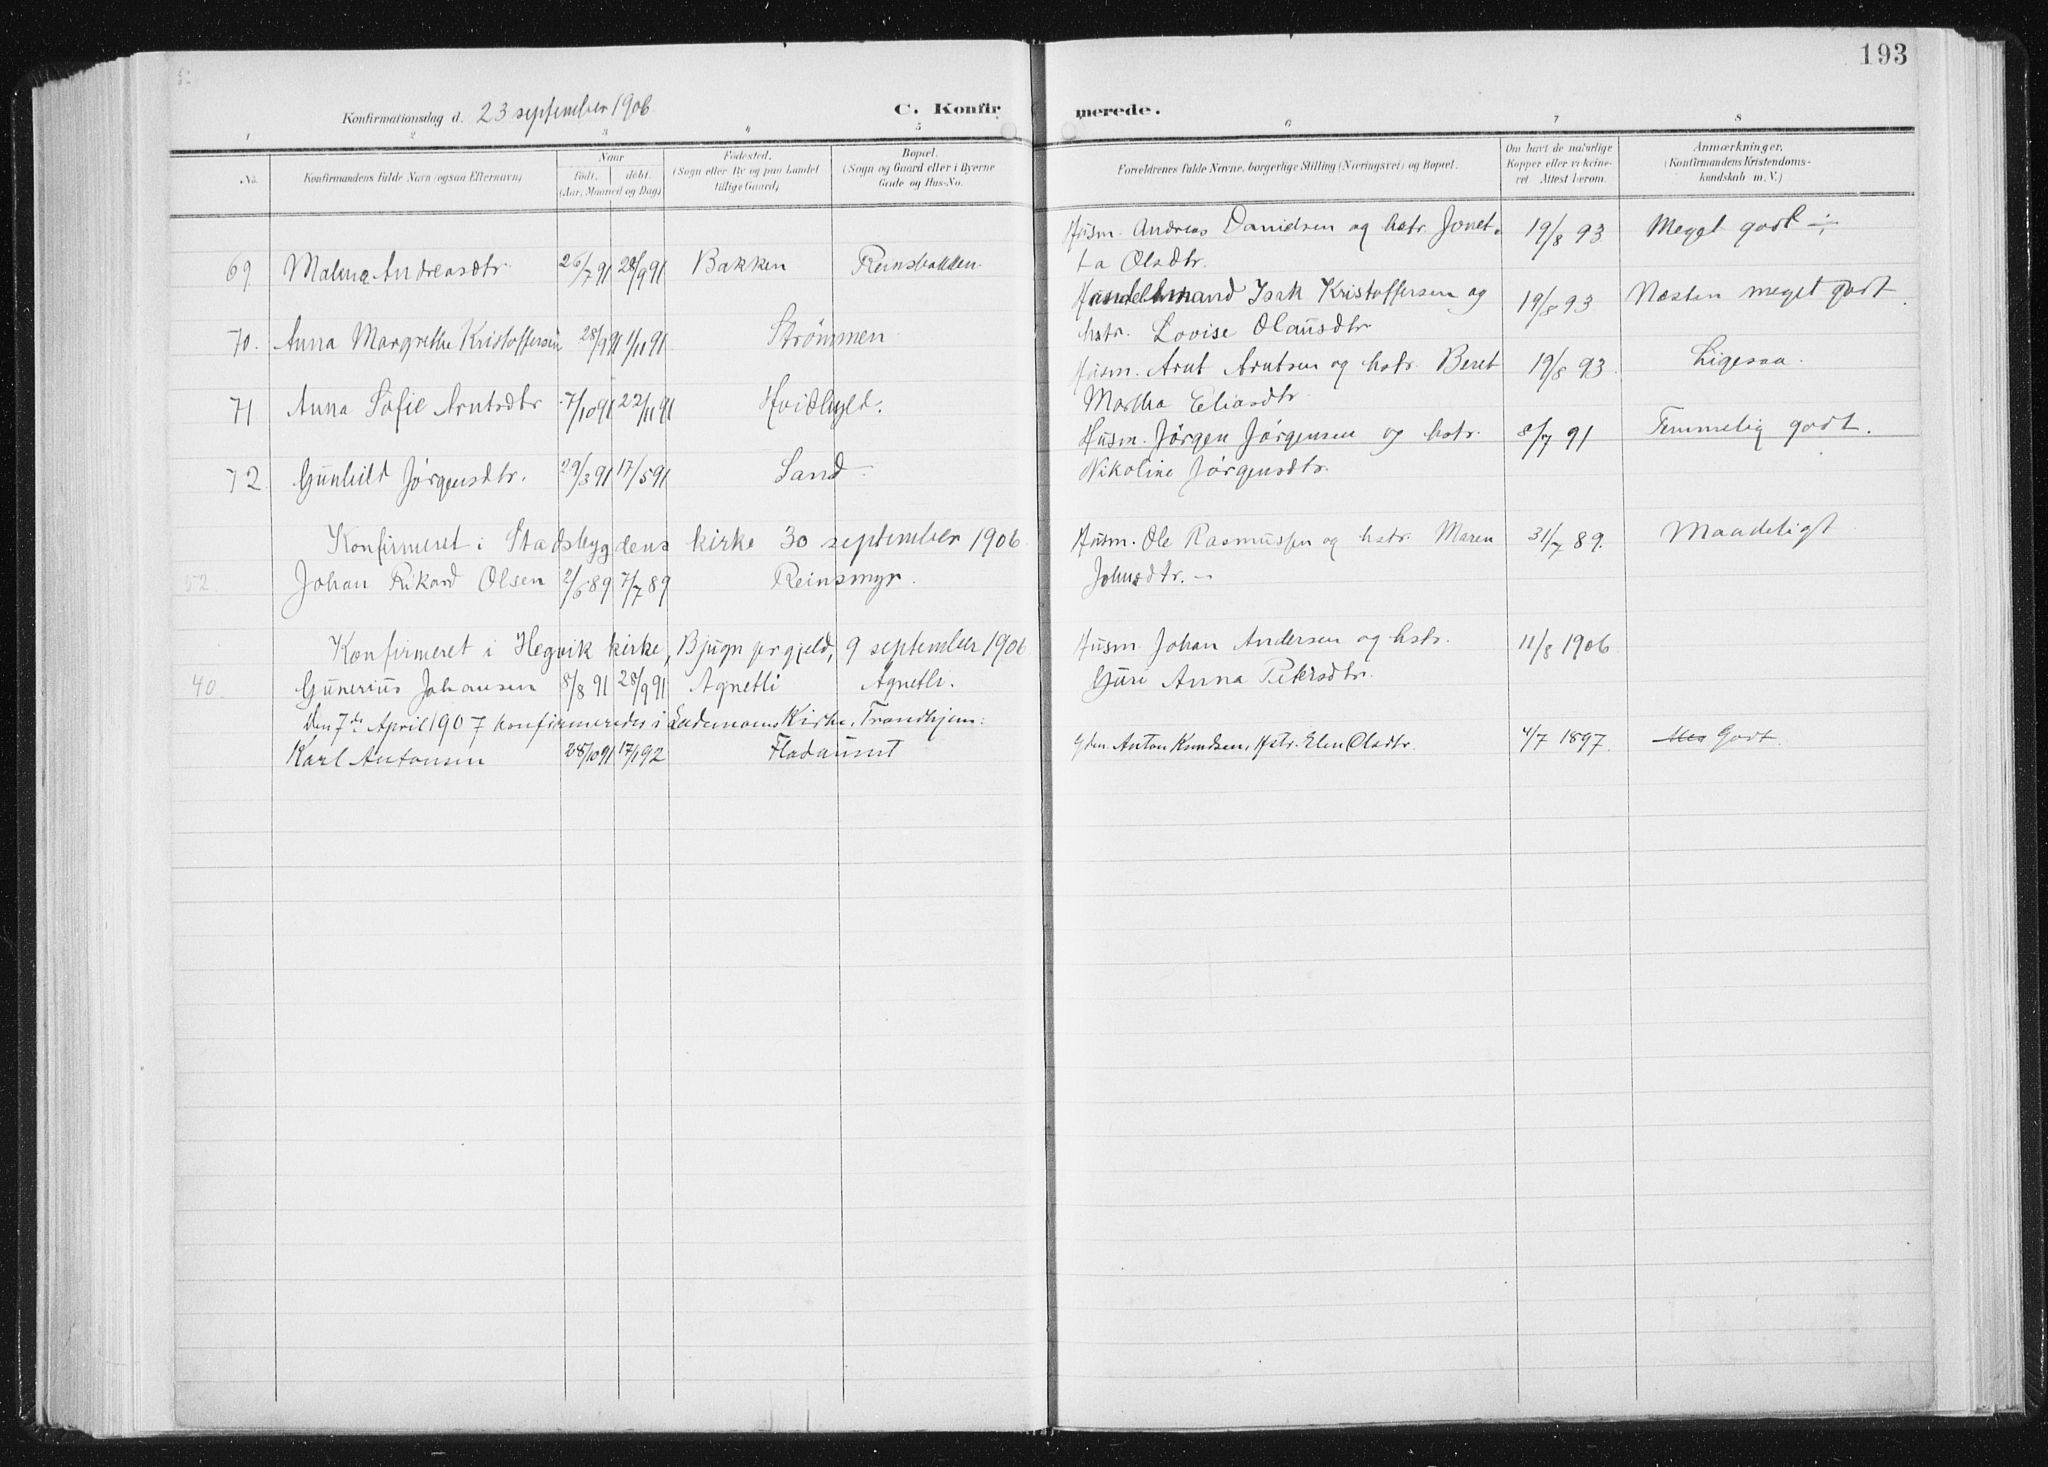 193
Konfirmationsdag d. 23 september 1906
C. Konfirmerede.
1 2 3 4 5 6 7 8
No.
Konfirmandens fulde Navn (ogsaa Efternavn)
Naar
født. døbt.
(Aar, Maaned og Dag)
Fødested.
(Sogn eller By og paa Landet
tillige Gaard)
Bopæl.
(Sogn og Gaard eller i Byerne
Gade og Hus-No.
Forældrenes fulde Navne, borgerlige Stilling (Næringsvei) og Bopæl.
Om havt de naturlige
Kopper eller vakcine-
ret Attest herom.
Anmærkninger.
(Konfirmandens Kristendoms-
kundskab m. V.)
Husm. Andreas Danielsen og hstr. Jonet- 19/8 93 Meget godt ÷
69 Andreasdtr. 26/7 91 28/9 91 Bakken Reinsbakken ta Olsdtr.
Handelsmand Isak Kristoffersen og 19/8 93 Næsten meget godt
70. Anna Margrethe Kristoffersen 28/9 91 1/11 91 Strømmen hstr. Lovise Olausdtr
Husm. Arnt Arntsen og hstr. Beret 19/8 93. Ligesaa.
71 Anna Sofie Arntsdtr 7/10 91 22/11 91 Hvidhyld. Martha Eliasdtr
Husm. Jørgen Jørgensen og hstr. 8/7 91 Temmelig godt.
72 Gunhild Jørgensdtr. 29/3 91 17/5 91 Sand Nikoline Jørgensdtr.
Konfirmeret i Stadsbygdens kirke 30 september 1906 Husm. Ole Rasmussen og hstr. Maren 31/7 89. Maadeligt
52. Johan Rikard Olsen 2/6 89 7/7 89 Reinsmyr. Johnsdtr. –
Konfirmeret i Hegvik kirke, Bjugn prgjeld, 9 september 1906 Husm. Johan Andersen og hstr. 11/8 1906
40 Gunerius Johansen 8/8 91 28/9 91 Agnetli Agnetli. Guri Anna Petersdtr.
Den 7de April 1907 konfirmeredes i Lademoens Kirke, Trondhjem:
Karl Antonsen 28/10 91 17/1 92 Fladaunet Gdm. Anton Knudsen, Hstr. Elen Olsdtr. 4/7 1897. Meg Godt.